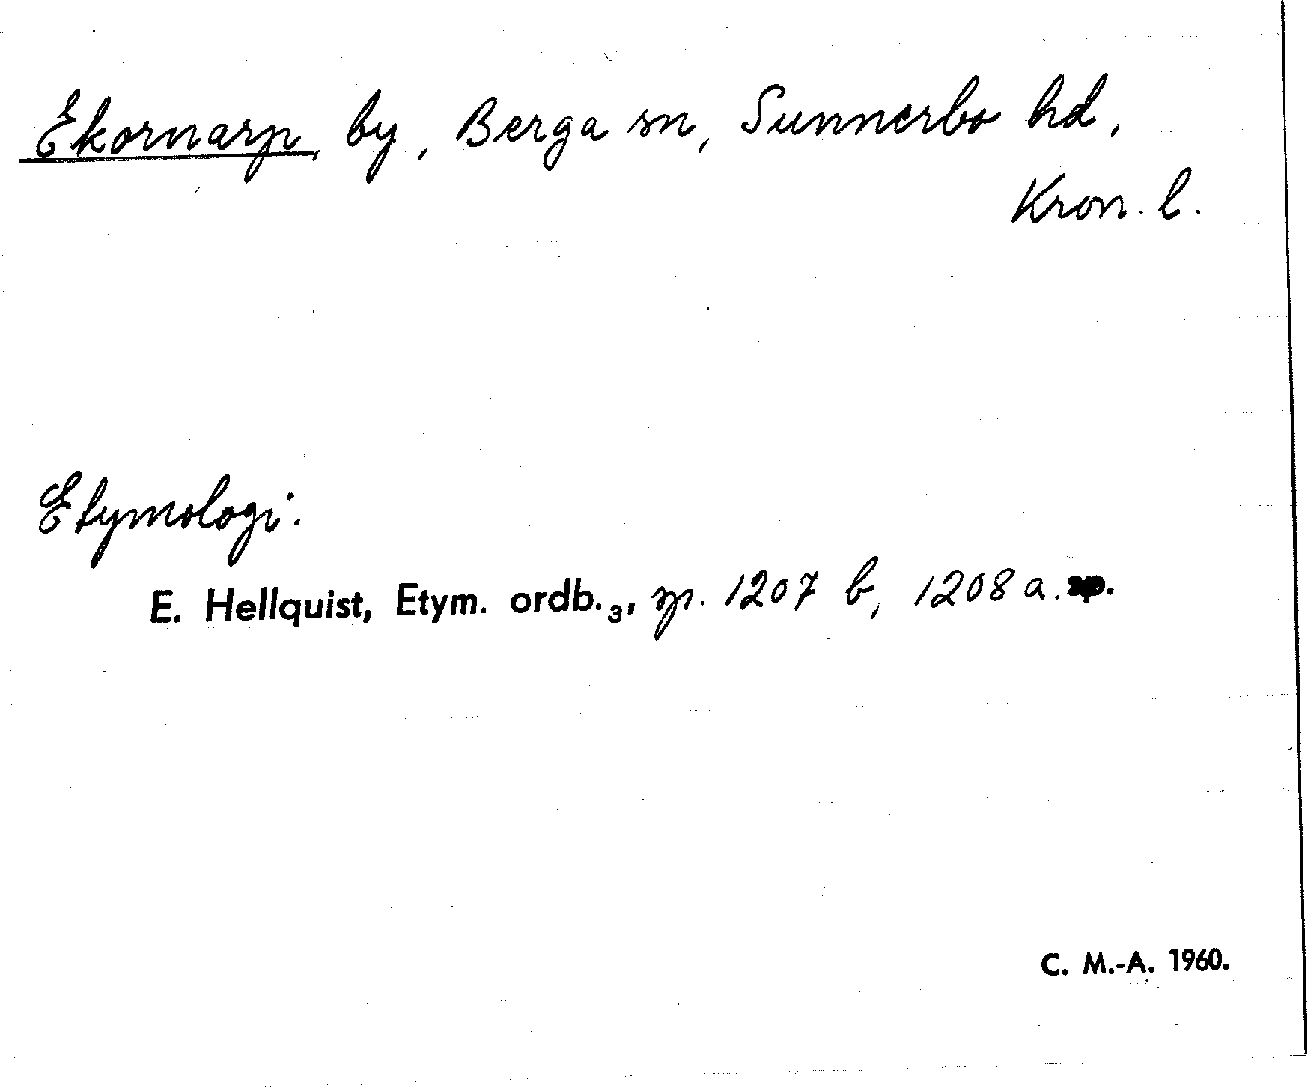 Ekornarp, by, Berga sn, Sunnerbo hd,
Kron. l.
Etymologi.
E. Hellquist, Etym. ordb.₃, sp. 1207 b, 1208 a.
C. M.-A. 1960.